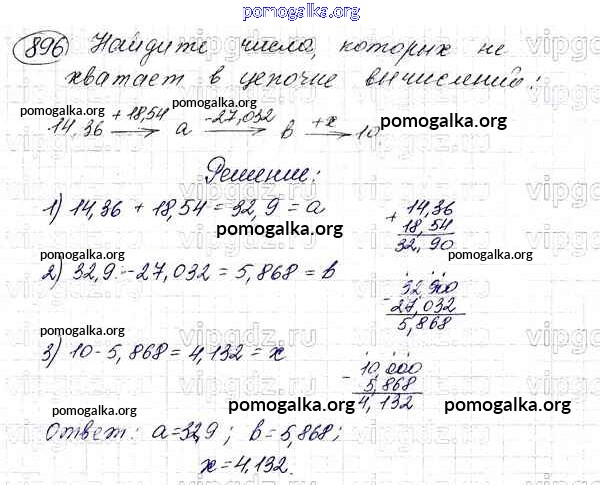 pomogalka.org
896 Найдите числа, которых не
хватает в цепочке вычислений:
pomogalka.org pomogalka.org
14,36 + 18,54 → a - 27,032 → b + x → 10 pomogalka.org
Решение:
1) 14,36 + 18,54 = 32,9 = a
+ 14,36
18,54
32,90
pomogalka.org pomogalka.org
2) 32,9 - 27,032 = 5,868 = b
- 32,900
27,032
5,868
pomogalka.org pomogalka.org
3) 10 - 5,868 = 4,132 = x
- 10,000
5,868
4,132
pomogalka.org pomogalka.org pomogalka.org
Ответ: a = 32,9; b = 5,868;
x = 4,132.
pomogalka.org pomogalka.org
vipgdz.ru